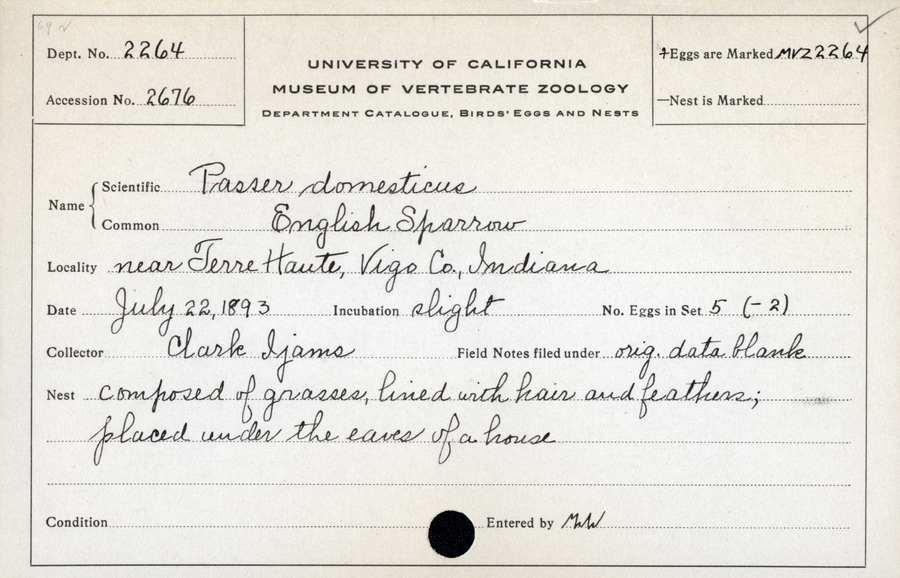 Dept. No. 2264
Accession No. 2676
UNIVERSITY OF CALIFORNIA
MUSEUM OF VERTEBRATE ZOOLOGY
DEPARTMENT CATALOGUE, BIRDS' EGGS AND NESTS
+Eggs are Marked MVZ2264
—Nest is Marked
Name { Scientific Passer domesticus
Common English Sparrow
Locality near Terre Haute, Vigo Co., Indiana
Date July 22, 1893 Incubation slight No. Eggs in Set 5 (-2)
Collector Clark Ijams Field Notes filed under orig. data blank
Nest composed of grasses, lined with hair and feathers;
placed under the eaves of a house
Condition Entered by